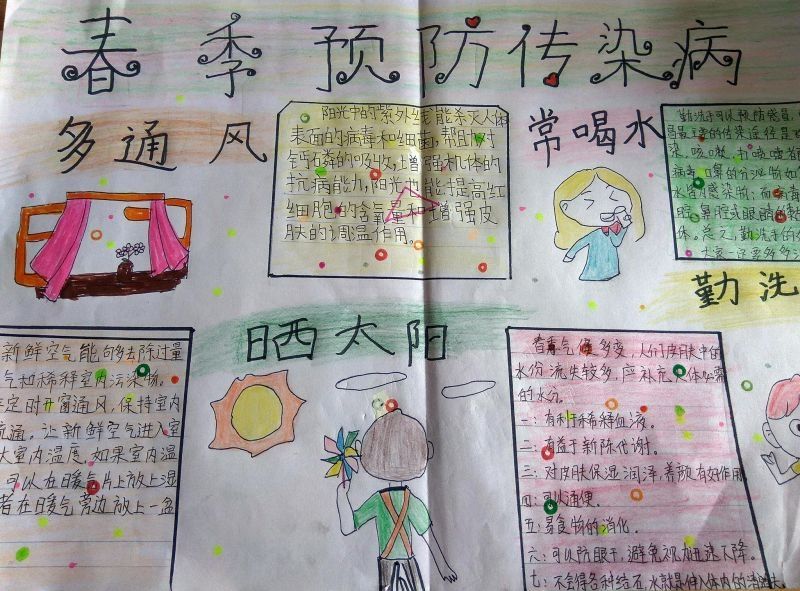 春季预防传染病
多通风
阳光中的紫外线能杀灭人体
表面的病毒和细菌,帮助对
钙石素的吸收,增强机体的
抗病能力,阳光也能提高红
细胞的含氧量和增强皮
肤的调温作用.
常喝水
勤洗手可以预防感冒,
染,咳嗽,打喷嚏
水
体。总之,勤洗手的
大家一定要多多
勤洗
晒太阳
新鲜空气能够多去除过量
气和稀释室内污染物。
定时开窗通风,保持室内
流通,让新鲜空气进入室
大室内温度.如果室内温
可以在暖气片上放上湿
者在暖气旁边放上一盆
春季气候多变,人们皮肤中的
水份流失较多,应补充人体必需
的水分.
一:有利于稀释血液。
二:有益于新陈代谢.
三:对皮肤保湿润泽,养颜有好作用
四:可以通便.
五:易食物的消化.
六:可以防眼干,避免视力迅速下降.
七:不会得各种结石,水就是伸入体内的清道夫.